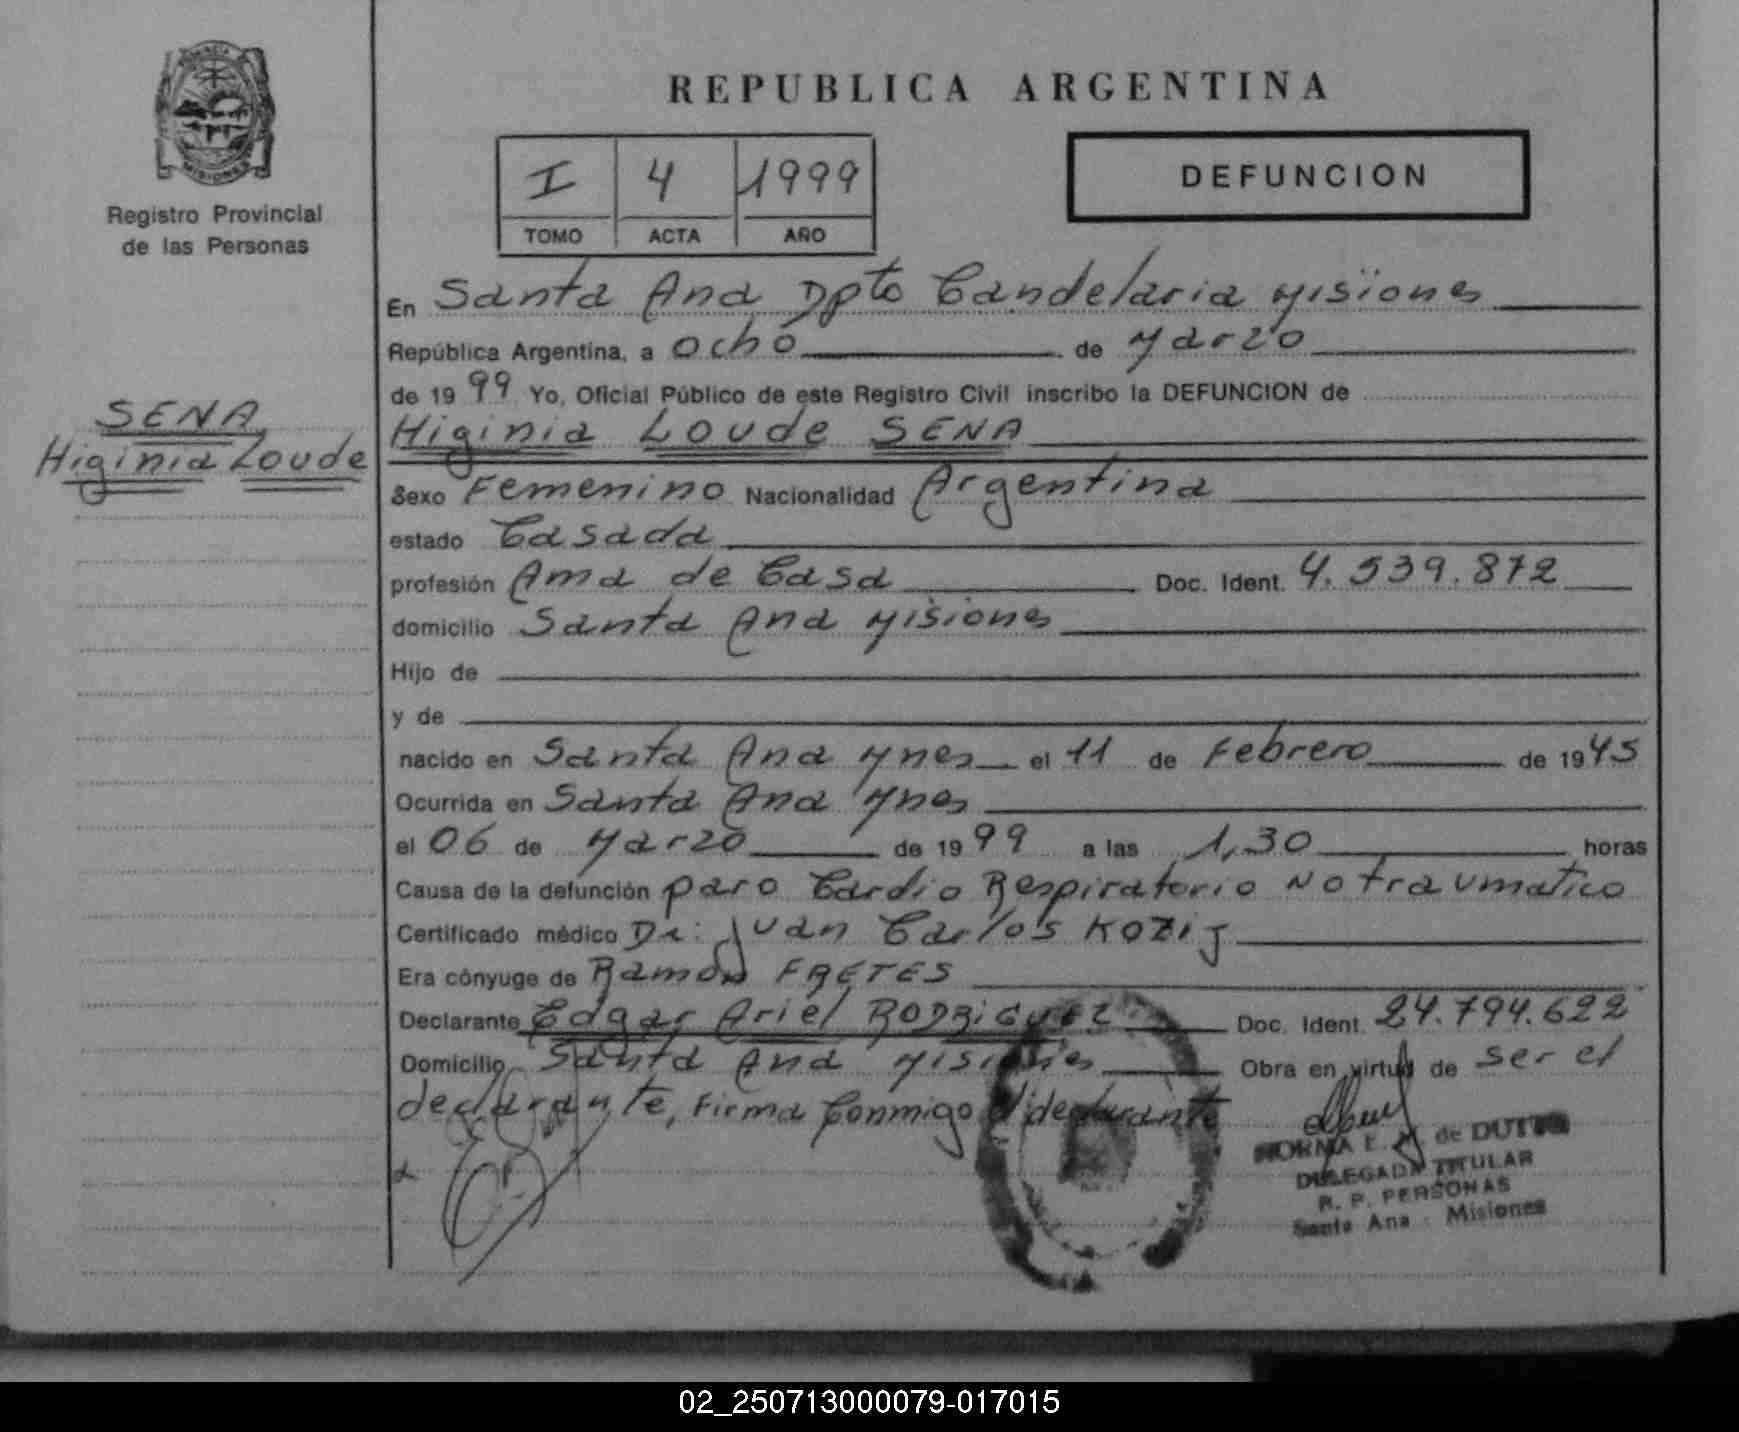 PROVINCIA
MISIONES
Registro Provincial
de las Personas
SENA
Higinia Loude
REPUBLICA ARGENTINA
I 4 1999
TOMO ACTA AÑO
DEFUNCION
En Santa Ana Dpto Candelaria Misiones
República Argentina, a ocho de Marzo
de 1999 Yo, Oficial Público de este Registro Civil inscribo la DEFUNCION de
Higinia Loude SENA
Sexo Femenino Nacionalidad Argentina
estado Casada
profesión Ama de Casa Doc. Ident. 4.539.872
domicilio Santa Ana Misiones
Hijo de
y de
nacido en Santa Ana Mnes el 11 de Febrero de 1945
Ocurrida en Santa Ana Mnes
el 06 de Marzo de 1999 a las 1,30 horas
Causa de la defunción paro Cardio Respiratorio No traumatico
Certificado médico Dr: Juan Carlos Kozij
Era cónyuge de Ramon FRETES
Declarante Edgar Ariel RODRIGUEZ Doc. Ident. 24.794.622
Domicilio Santa Ana Misiones Obra en virtud de ser el
declarante, Firma Conmigo el declarante
NORMA E. M. de DUTTO
DELEGADA TITULAR
R. P. PERSONAS
Santa Ana - Misiones
02_250713000079-017015